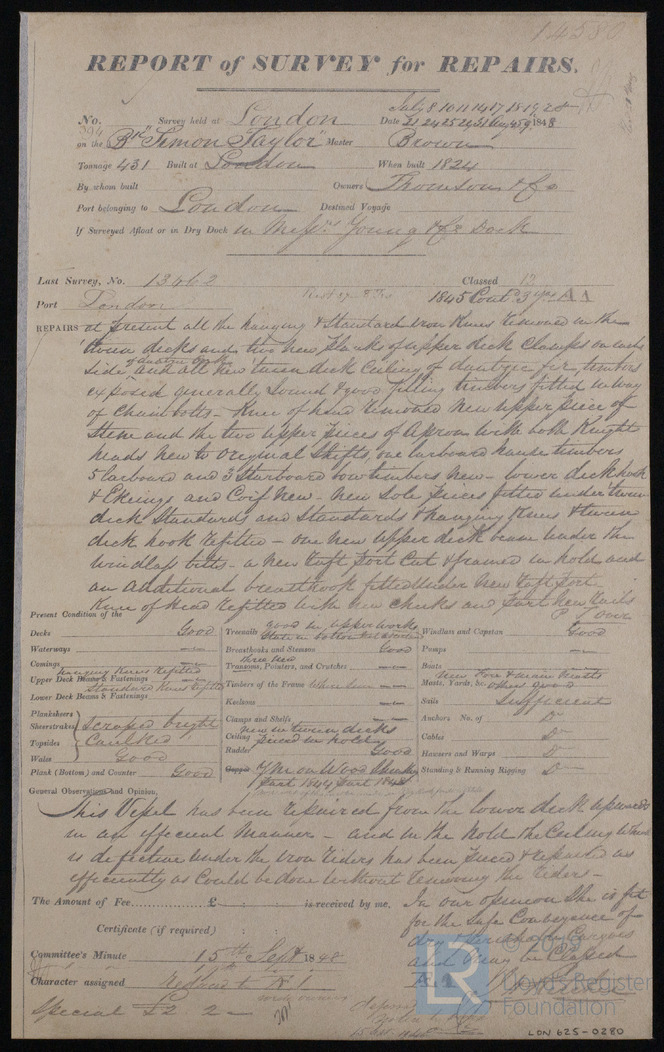 14580
REPORT of SURVEY for REPAIRS.
No. 394 Survey held at London Date July 8 10 11 14 17 18 19 20
21 24 25 29 31 Aug 4 5 9 1848
on the Bk "Simon Taylor" Master Brown
Tonnage 431 Built at London When built 1824
By whom built Owners Thomson & Co
Port belonging to London Destined Voyage
If Surveyed Afloat or in Dry Dock in Messrs Young & Co Dock
Last Survey, No. 13462 Classed 12
Port London 1845 Cont 3 yrs A A
REPAIRS at present all the hanging & Standard Iron Knees removed in the
tween decks and two New planks of upper deck Clamps on each
side and all New tween deck Ceiling of dantzic fir, timbers
exposed generally Sound & good filling timbers fitted in way
of Chainbolts - Knee of head removed New upper piece of
Stem and the two upper pieces of Apron with both Knight
heads new to original shifts, one larboard hawse timbers
5 larboard and 3 Starboard bow timbers new - lower deck hook
& Ekeings and Coif New - New Sole pieces fitted under tween
deck Standards and Standards & hanging Knees & tween
deck hook refitted - one New upper deck beam under the
windlass bitts - a New raft Port Cut & framed in hold and
an additional breasthook fitted under New raft Port
Knee of Head refitted with new Cheeks and part New Rails
P. Over
Present Condition of the
Decks Good
Waterways
Comings
Upper Deck Beams & Fastenings hanging Knees Refitted
Lower Deck Beams & Fastenings Standard Knees Refitted
Planksheers
Sheerstrakes
Topsides
Wales
Scraped bright
Caulked
Good
Plank (Bottom) and Counter Good
Treenails good in upper works
Breasthooks and Stemson Good
three new
Transoms, Pointers, and Crutches
Timbers of the Frame Where seen
Keelsons
Clamps and Shelfs
Ceiling new in tween decks
pieced in hold
Rudder Good
Copper YM on Wood Sheathing
part 1844 part 1848
Windlass and Capstan Good
Pumps
Boats
Masts, Yards, &c. New Fore & Main Masts
others good
Sails Sufficient
Anchors No. of Do
Cables Do
Hawsers and Warps Do
Standing & Running Rigging Do
General Observations and Opinion,
This Vessel has been repaired from the lower deck upwards
in an efficient Manner - and in the hold the Ceiling where
is defective under the Iron Riders has been pieced & repaired as
efficiently as Could be done without removing the riders -
In our opinion She is fit
for the Safe Conveyance of
dry & perishable Cargoes
and may be Classed
The Amount of Fee £ : : is received by me,
Certificate (if required) : :
Committee's Minute 15th Septr 1848
Character assigned
Special £2. 2 -
© 2019
LR
Lloyd's Register
Foundation
LON 625-0280